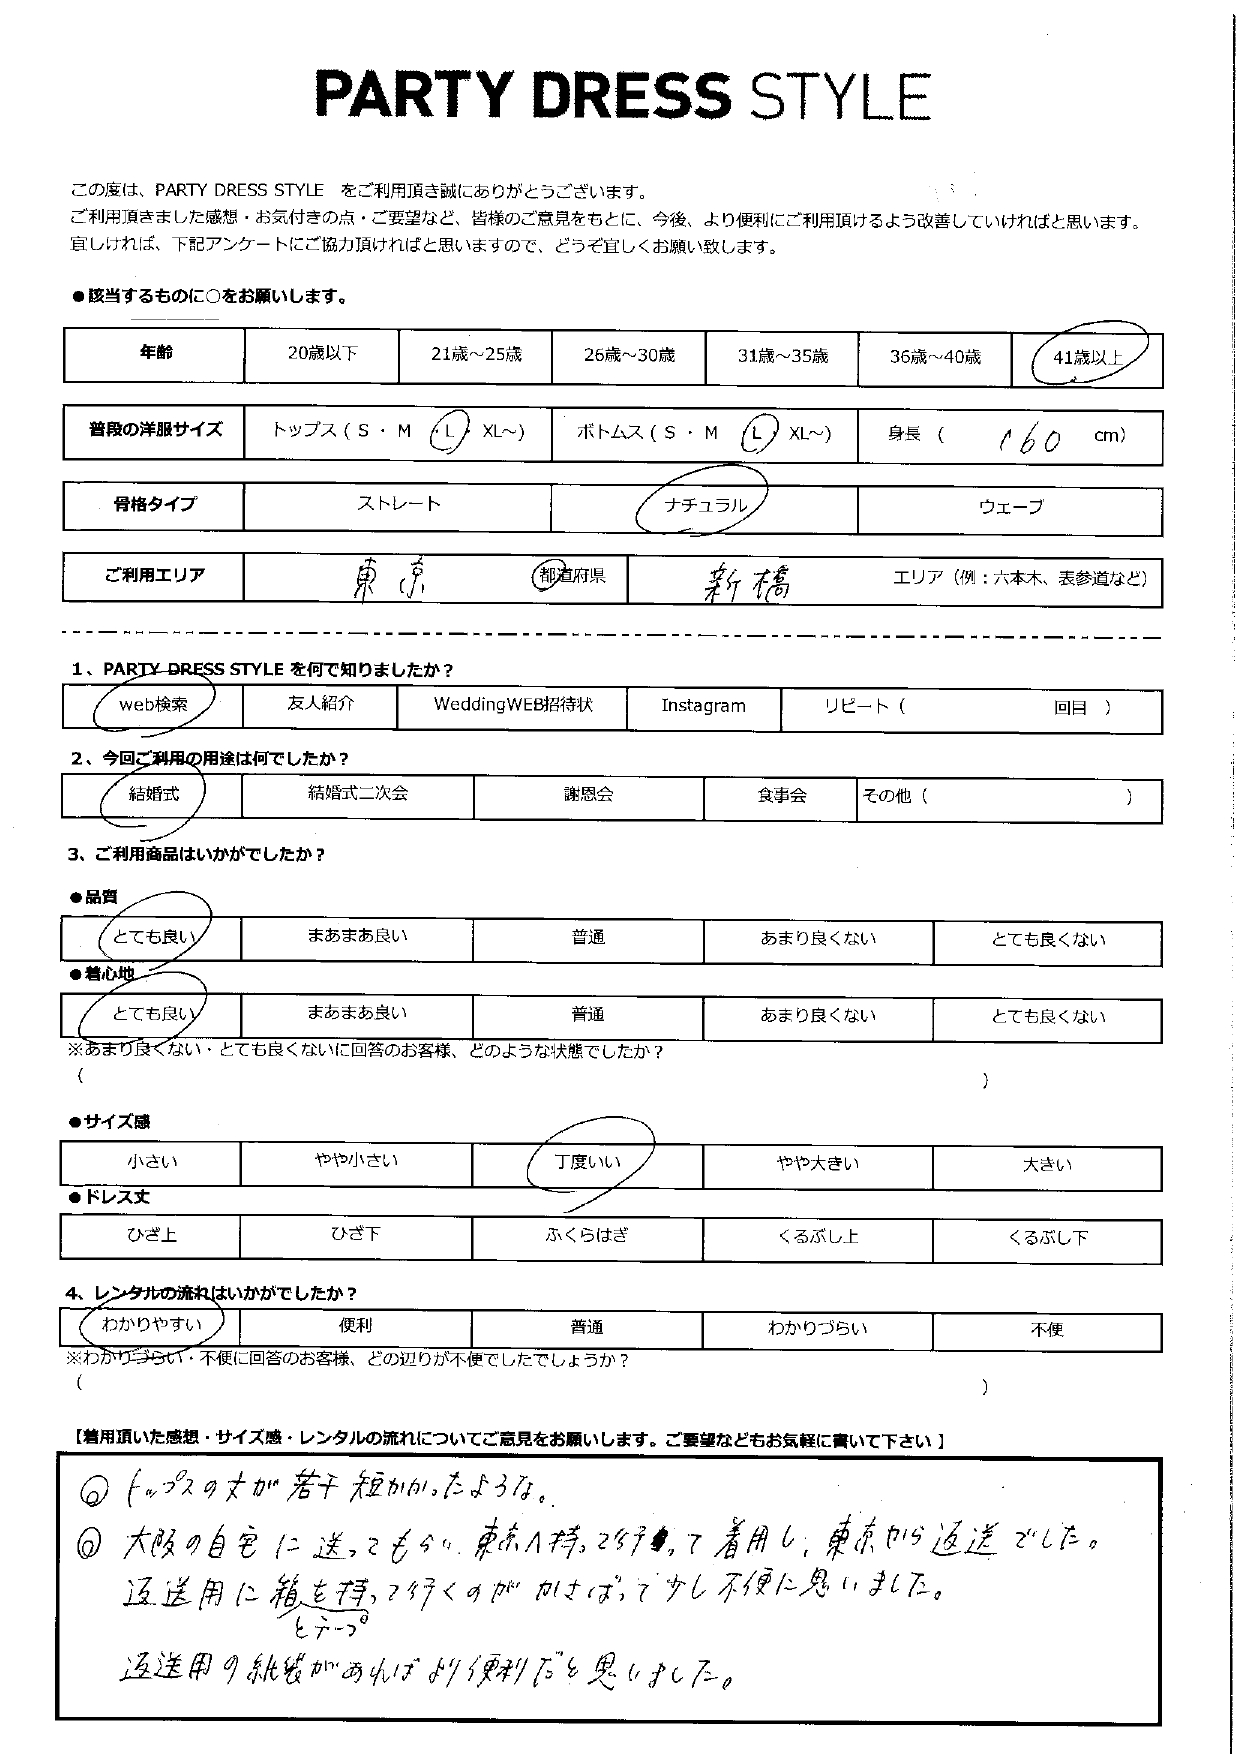 PARTY DRESS STYLE
この度は、PARTY DRESS STYLE をご利用頂き誠にありがとうございます。
ご利用頂きました感想・お気付きの点・ご要望など、皆様のご意見をもとに、今後、より便利にご利用頂けるよう改善していければと思います。
宜しければ、下記アンケートにご協力頂ければと思いますので、どうぞ宜しくお願い致します。
●該当するものに○をお願いします。
年齢 20歳以下 21歳～25歳 26歳～30歳 31歳～35歳 36歳～40歳 41歳以上
普段の洋服サイズ トップス ( S ・ M ・ L ・ XL～) ボトムス ( S ・ M ・ L ・ XL～) 身長 ( 160 cm)
骨格タイプ ストレート ナチュラル ウェーブ
ご利用エリア 東京 都道府県 新橋 エリア（例：六本木、表参道など）
1、PARTY DRESS STYLE を何で知りましたか？
web検索 友人紹介 WeddingWEB招待状 Instagram リピート ( 回目 )
2、今回ご利用の用途は何でしたか？
結婚式 結婚式二次会 謝恩会 食事会 その他 ( )
3、ご利用商品はいかがでしたか？
●品質
とても良い まあまあ良い 普通 あまり良くない とても良くない
●着心地
とても良い まあまあ良い 普通 あまり良くない とても良くない
※あまり良くない・とても良くないに回答のお客様、どのような状態でしたか？
( )
●サイズ感
小さい やや小さい 丁度いい やや大きい 大きい
●ドレス丈
ひざ上 ひざ下 ふくらはぎ くるぶし上 くるぶし下
4、レンタルの流れはいかがでしたか？
わかりやすい 便利 普通 わかりづらい 不便
※わかりづらい・不便に回答のお客様、どの辺りが不便でしたでしょうか？
( )
【着用頂いた感想・サイズ感・レンタルの流れについてご意見をお願いします。ご要望などもお気軽に書いて下さい 】
◎ トップスの丈が若干短かかったような。
◎ 大阪の自宅に送ってもらい、東京へ持って行って着用し、東京から返送でした。
返送用に箱を持って行くのがかさばって少し不便に思いました。
とテープ
返送用の紙袋があればより便利だと思いました。